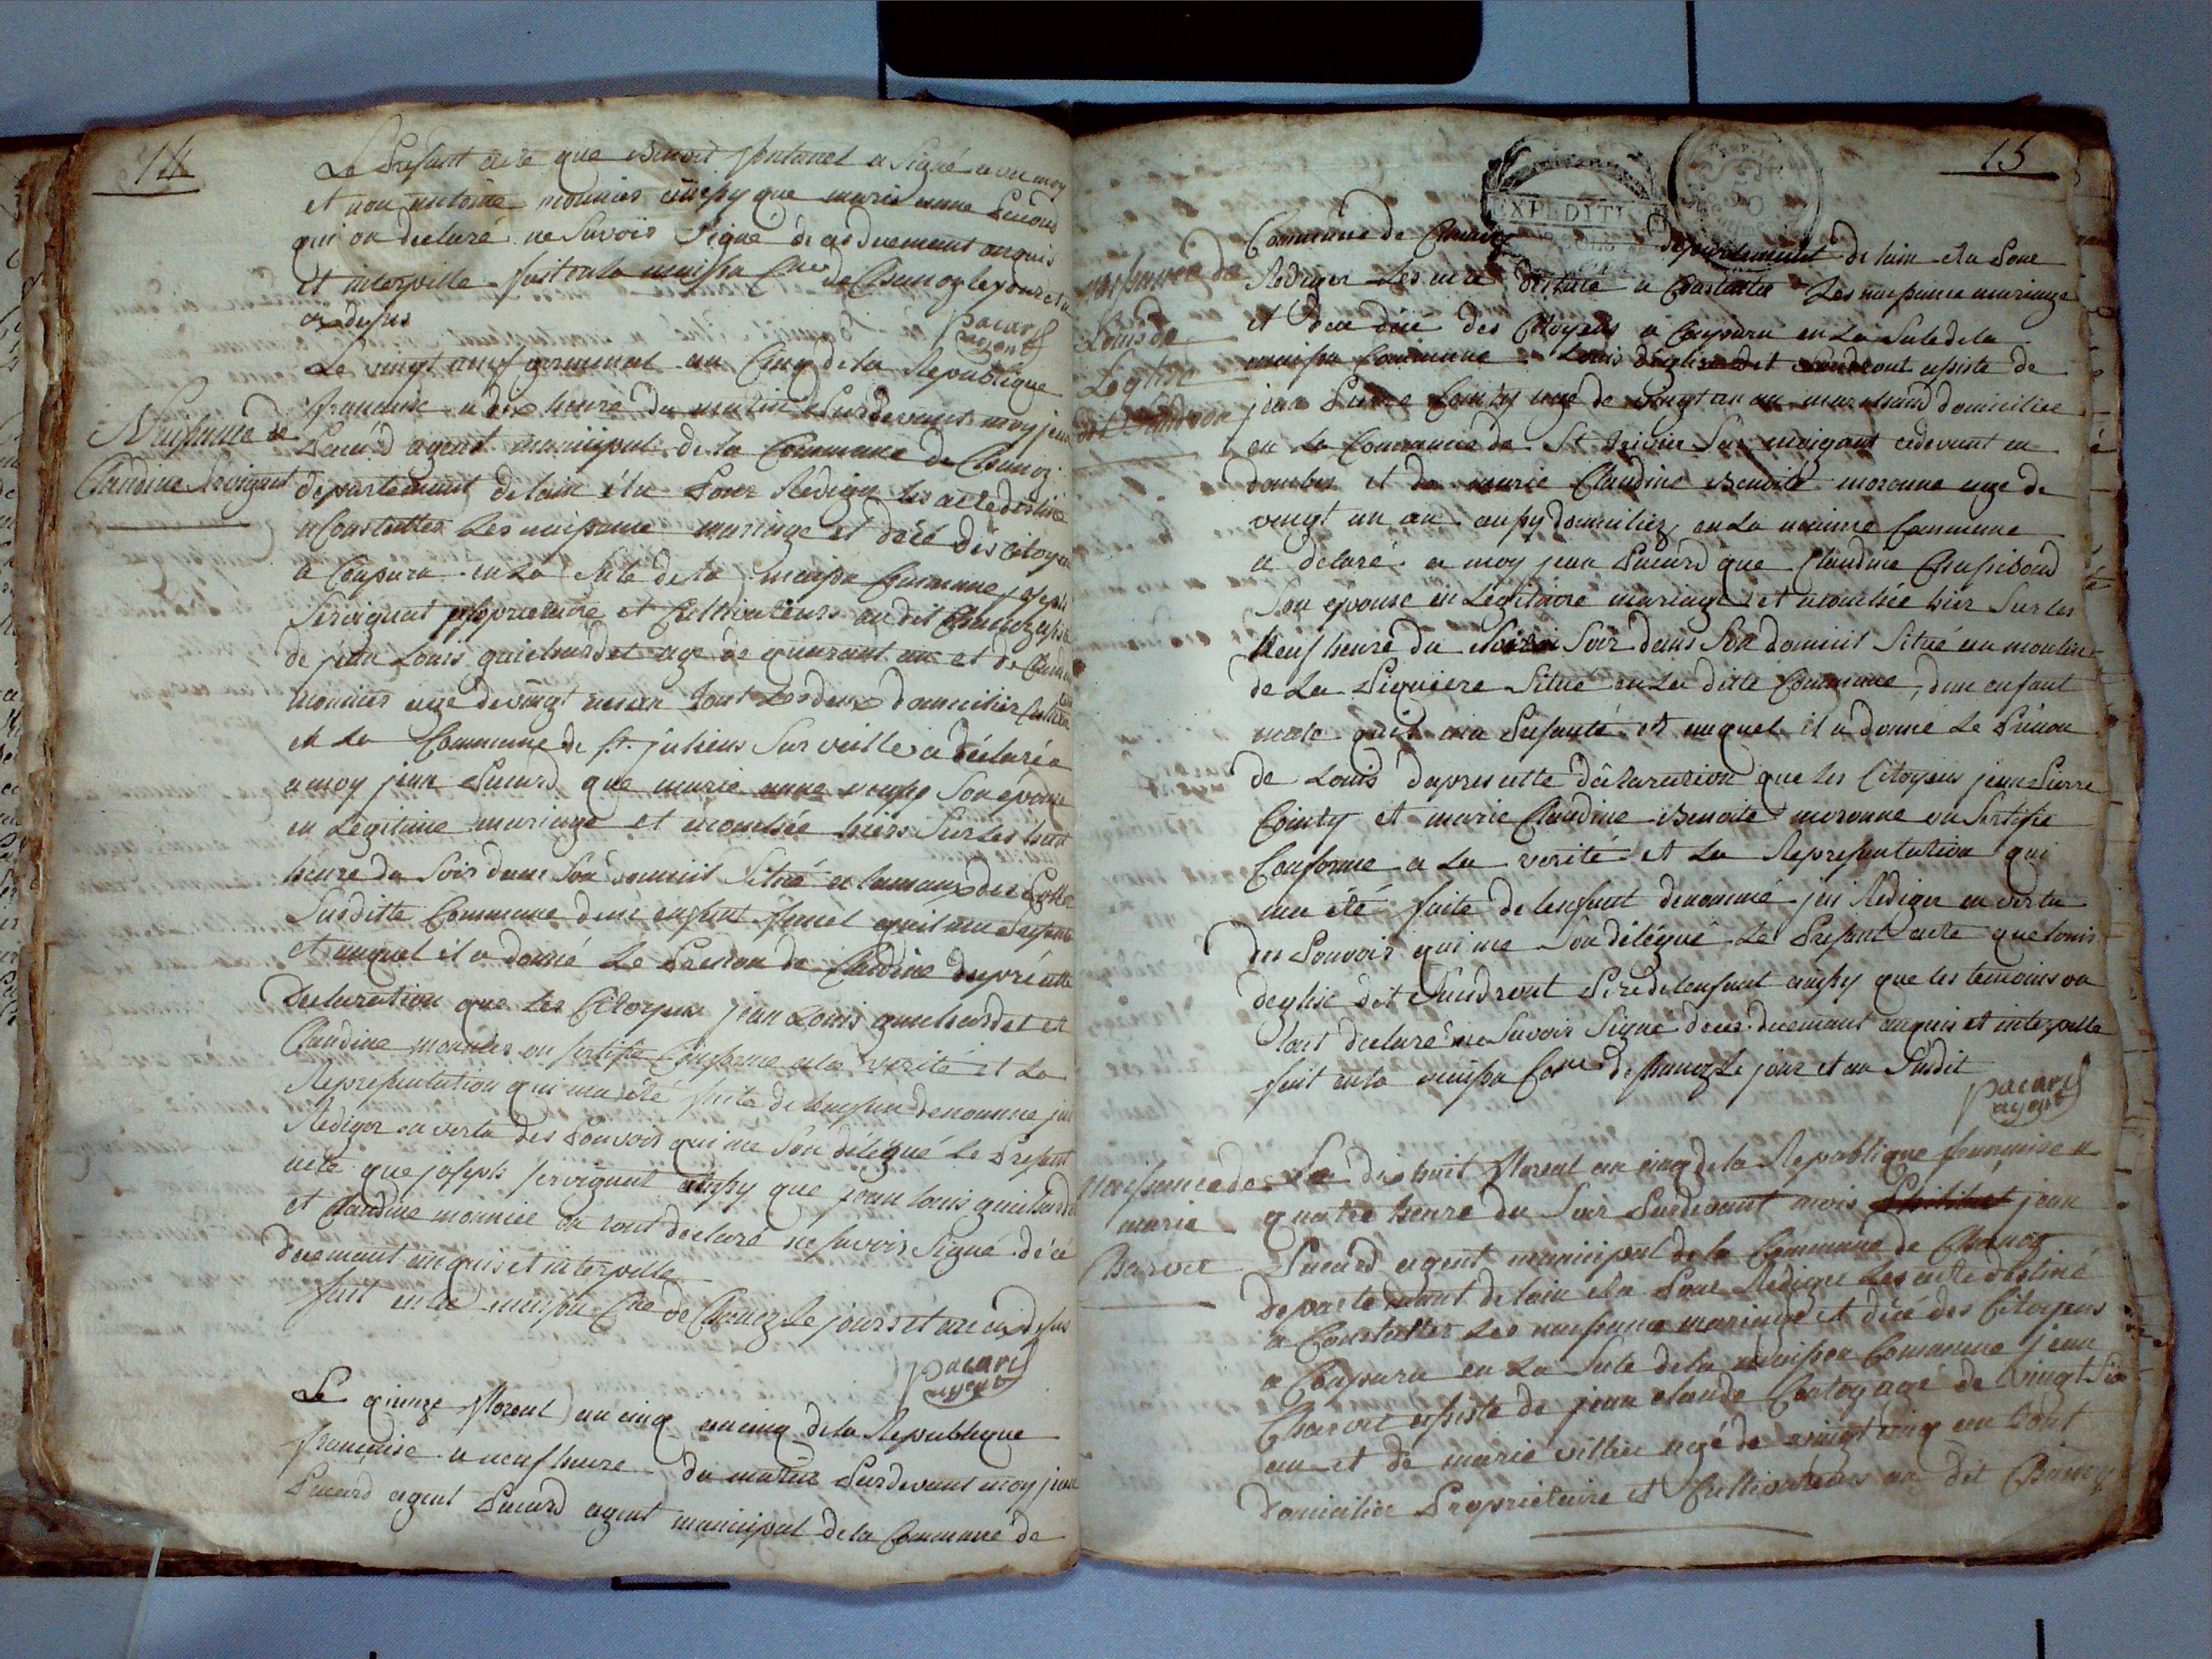 14
Le Present acte que Benoit fontanel a Signé avec moy
et non antoine mounier aussy que marie anne
qui on declaré ne Savoir Signé de ce duemant anquis
et interpellé fait en la maison Cne de Chanoz le jour et an
cy desus
pacard
agent
Naissance de
Claudine Servignat
Le vingt neuf germinal an Cinq de la Republique
francaise a dix heure du matin Pardevant moy jean
Pacard agent municipal de la Commune de Chanoz
departemant de lain élu Pour Rediger les acte destiné
a Constatter Les naissance mariage et décé des Citoyen
a Conparu en La Sale de la maison Commune joseph
Servignat proprietaire et Cultivateurs audit Chanoz assisté
de jean Louis guichardet age de quarant an et de Claudine
mounier age de vingt an tout Les deux domicilier
en La Commune de St. juliens Sur veille a déclaré a
a moy jean Pacard que marie anne Son epouse
en Legitime mariage et acouchée hiers Sur Les huit
heure du Soir dans Son domicil Situé
Susditte Commune dune enfant femel quil ma Presenté
et auquel il a donné Le Prenon de Claudine daprè cette
Declaration que Les Citoyens jean Louis guichardet et
Claudine mounier on sertifié Conforme a la verité et La
Representation qui ma été faite de Lenfan denommé jai
Rediger en vertu des Pouvoir qui me Son délégué Le Present
acte que joseph servignat aussy que jean louis guichardet
et Claudine mounier on tout declaré ne savoir Signé de ce
duemant anquis et interpellé
fait en la maison Cne de Chanoz Le jours et an cy desus
pacard
agent
Le quinze floreal an cinq an cinq de la Republique
francaise a neuf heure du matin Pardevant moy jean
Pacard agent Pacard agent municipal de la Commune de
15
EXPEDITI
naissance de
Louis de
Léglise
dit
Commune de Chanoz departemant de lain élu Pour
Rediger Les acte destiné a Constatter Les naissance mariage
et decé des Citoyens a Conparu en La Sale de la
maison Commune Louis deglise dit assiste de
jean Pierre Cointy age de vingt an marchand domicilie
en la Commune de St trivier Sur moignans cedevant en
dombes et de marie Claudine Benoite moronne age de
vingt un an aussy domiciliez en La meme Commune
a declaré a moy jean Pacard que Claudine
Son epouse en Legitime mariage et acouchée hier Sur les
Neuf heure du Soir dans Son domicil Situé au moulin
de La Situé en La ditte Commune, dun enfant
male quil ma Presenté et auquel il a donné Le Prénon
de Louis dapres cette déclaration que les Citoyens jean Pierre
Cointy et marie Claudine Benoite moronne on Sertifié
Conforme a La verité et La Representation qui
ma été faite de lenfant denommé jai Rediger en vertu
des Pouvoir qui me Son délégué Le Present acte que louis
deglise dit Pere de lenfant aussy que les temoins on
tout declaré ne Savoir Signé de ce duemant anquis et interpellé
fait en la maison Cne de Chanoz Le jour et an Susdit
pacard
agent
Naissance de
marie
Charvet
Le dix huit floreal an cinq de la Republique francaise a
quatre heure du Soir Pardevant mois jean
Pacard agent municipal de la Commune de Chanoz
departemant de lain élu Pour Rediger Les acte destiné
a Constatter Les naissance mariage et décé des Citoyens
a Conparu en La Sale de la maison Commune jean
Charvet assisté de jean claude age de vingt Six
an et de marie age de vingt cinq an tout
domicilier Proprietaire et Cultivateurs au dit Chanoz